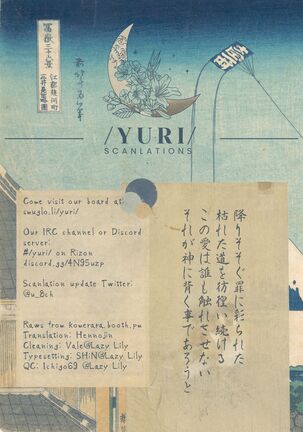 冨嶽三十六景
江都駿河町
三井見世略図
/YURI/
SCANLATIONS
Come visit our board at:
smuglo.li/yuri/
Our IRC channel or Discord
server:
#/yuri/ on Rizon
discord.gg/4N95uzp
Scanlation update Twitter:
@u_8ch
Raws from kowerara.booth.pm
Translation: Hennojin
Cleaning: Vale@Lazy Lily
Typesetting: SHiN@Lazy Lily
QC: Ichigo69 @Lazy Lily
降りそそぐ罪に彩られた
枯れた道を彷徨い続ける
この愛は誰も触れさせない
それが神に背く事であろうと